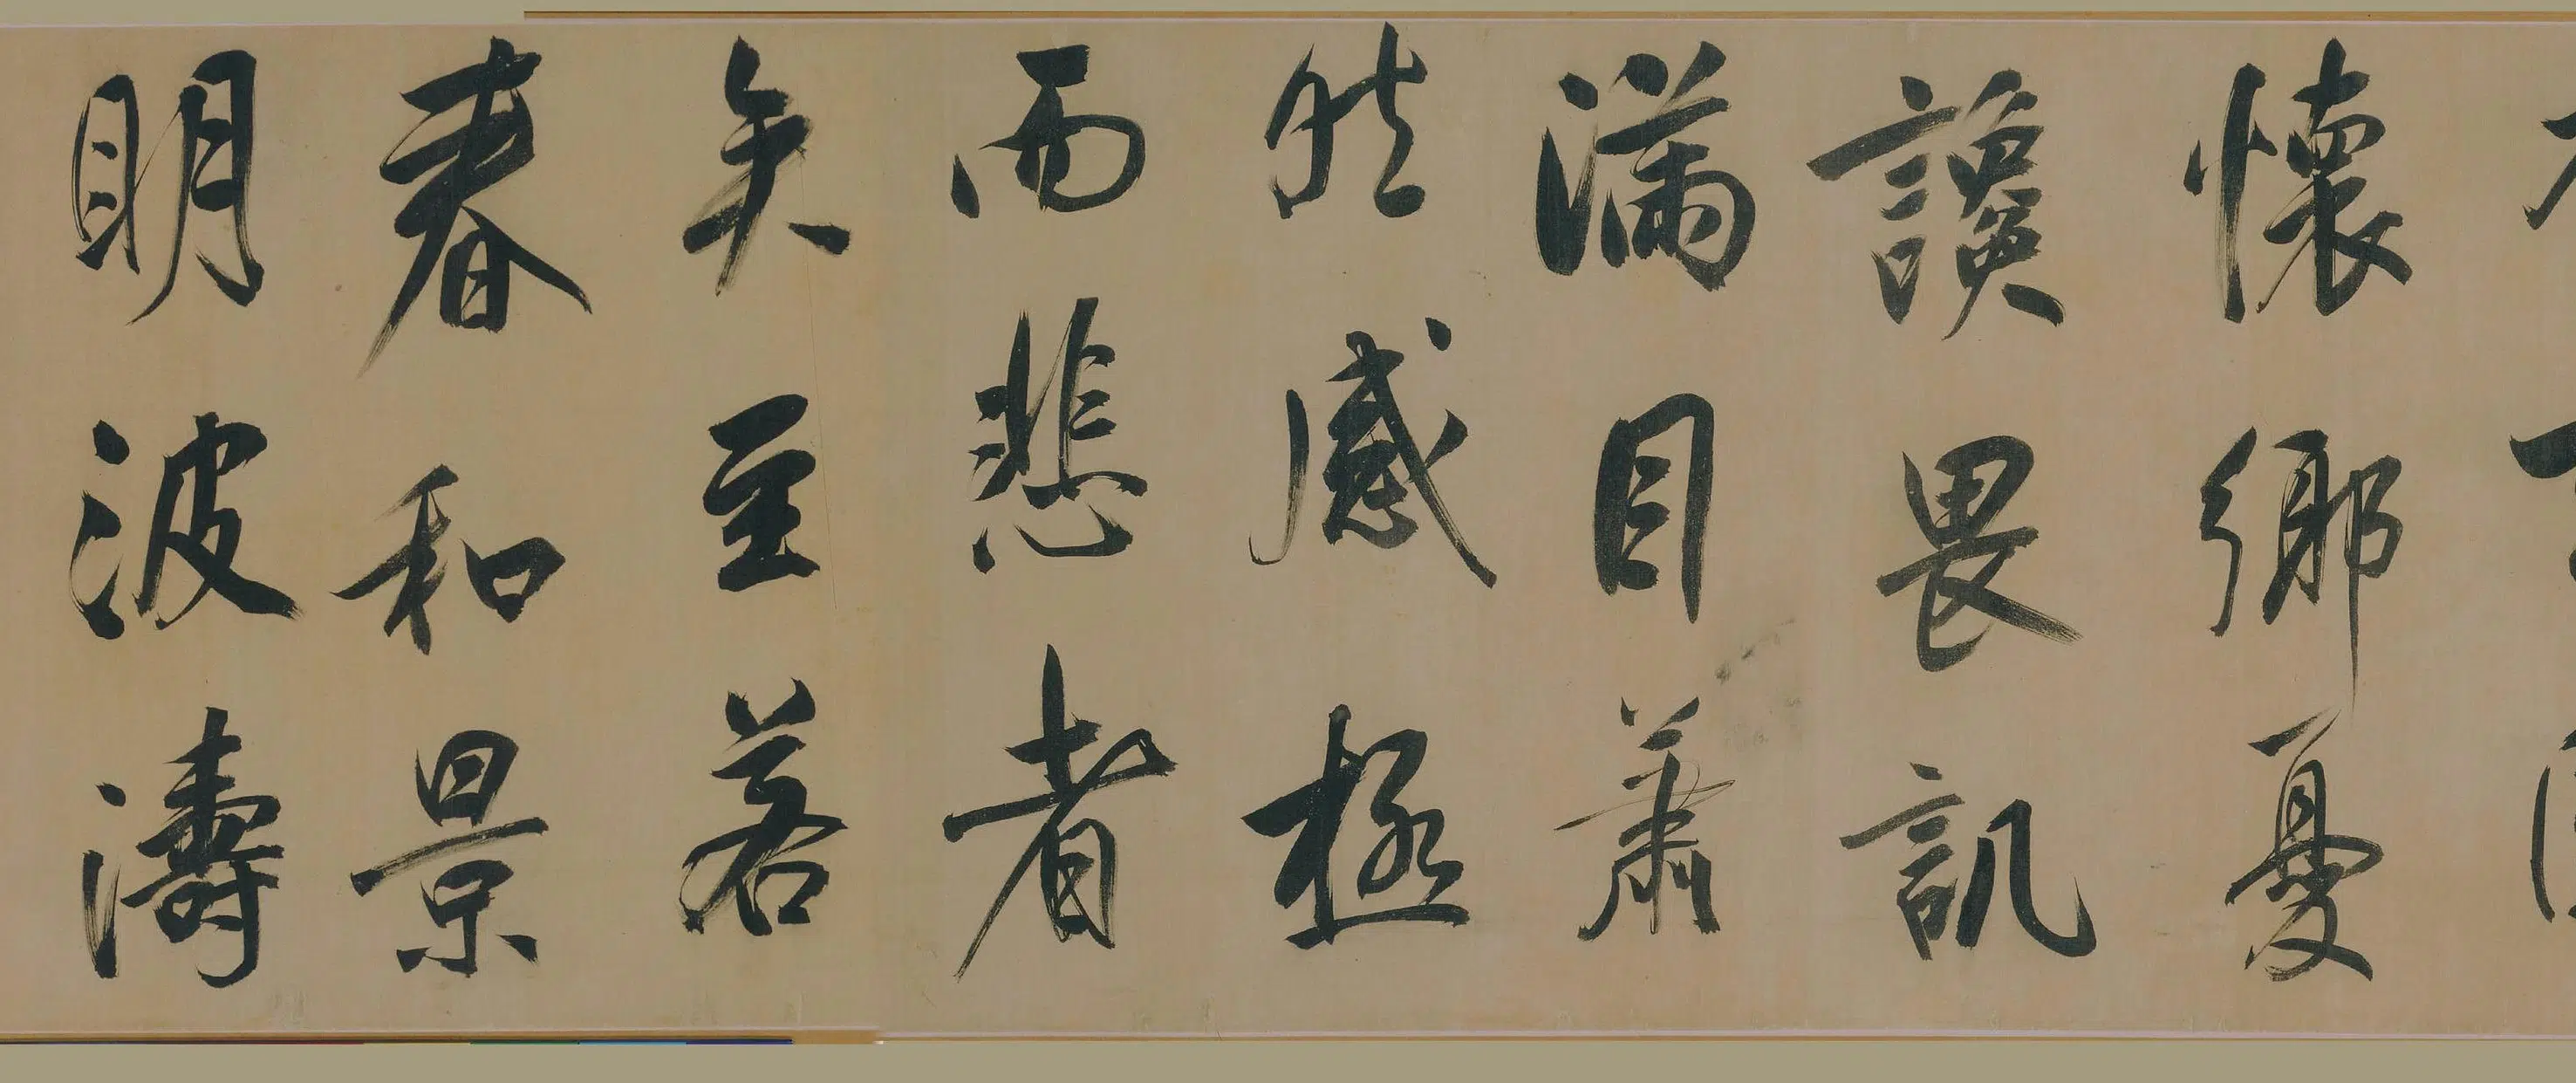 懷鄉憂
讒畏譏
滿目蕭
然感極
而悲者
矣至若
春和景
明波濤